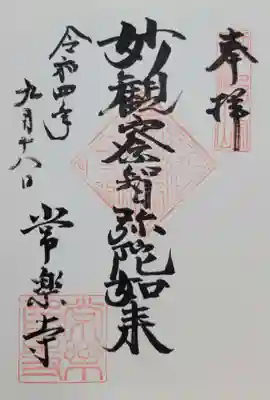 奉拝
妙観察智弥陀如来
令和四年
九月十八日
常楽寺